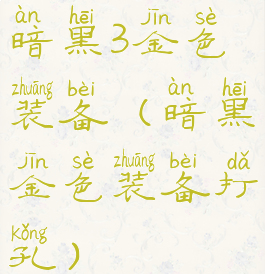 àn hēi jīn sè
暗黑3金色
zhuāng bèi àn hēi
装备(暗黑
jīn sè zhuāng bèi dǎ
金色装备打
kǒng
孔)